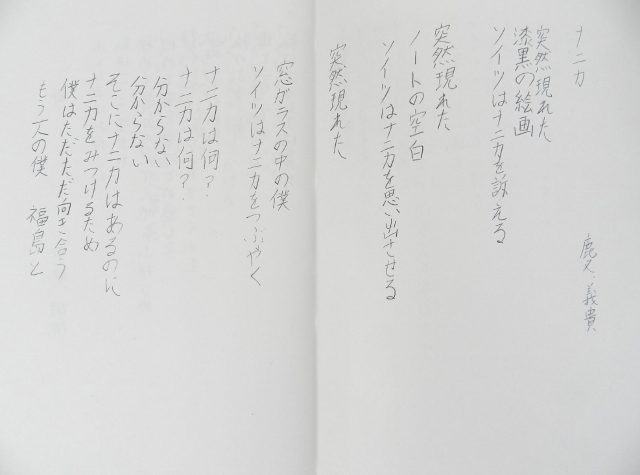 ナニカ
鹿又 義貴
突然現れた
漆黒の絵画
ソイツはナニカを訴える
突然現れた
ノートの空白
ソイツはナニカを思い出させる
突然現れた
窓ガラスの中の僕
ソイツはナニカをつぶやく
ナニカは何?
ナニカは何?
分からない
分からない
そこにナニカはあるのに
ナニカをみつけるため
僕はただただ向き合う
もう一人の僕 福島と